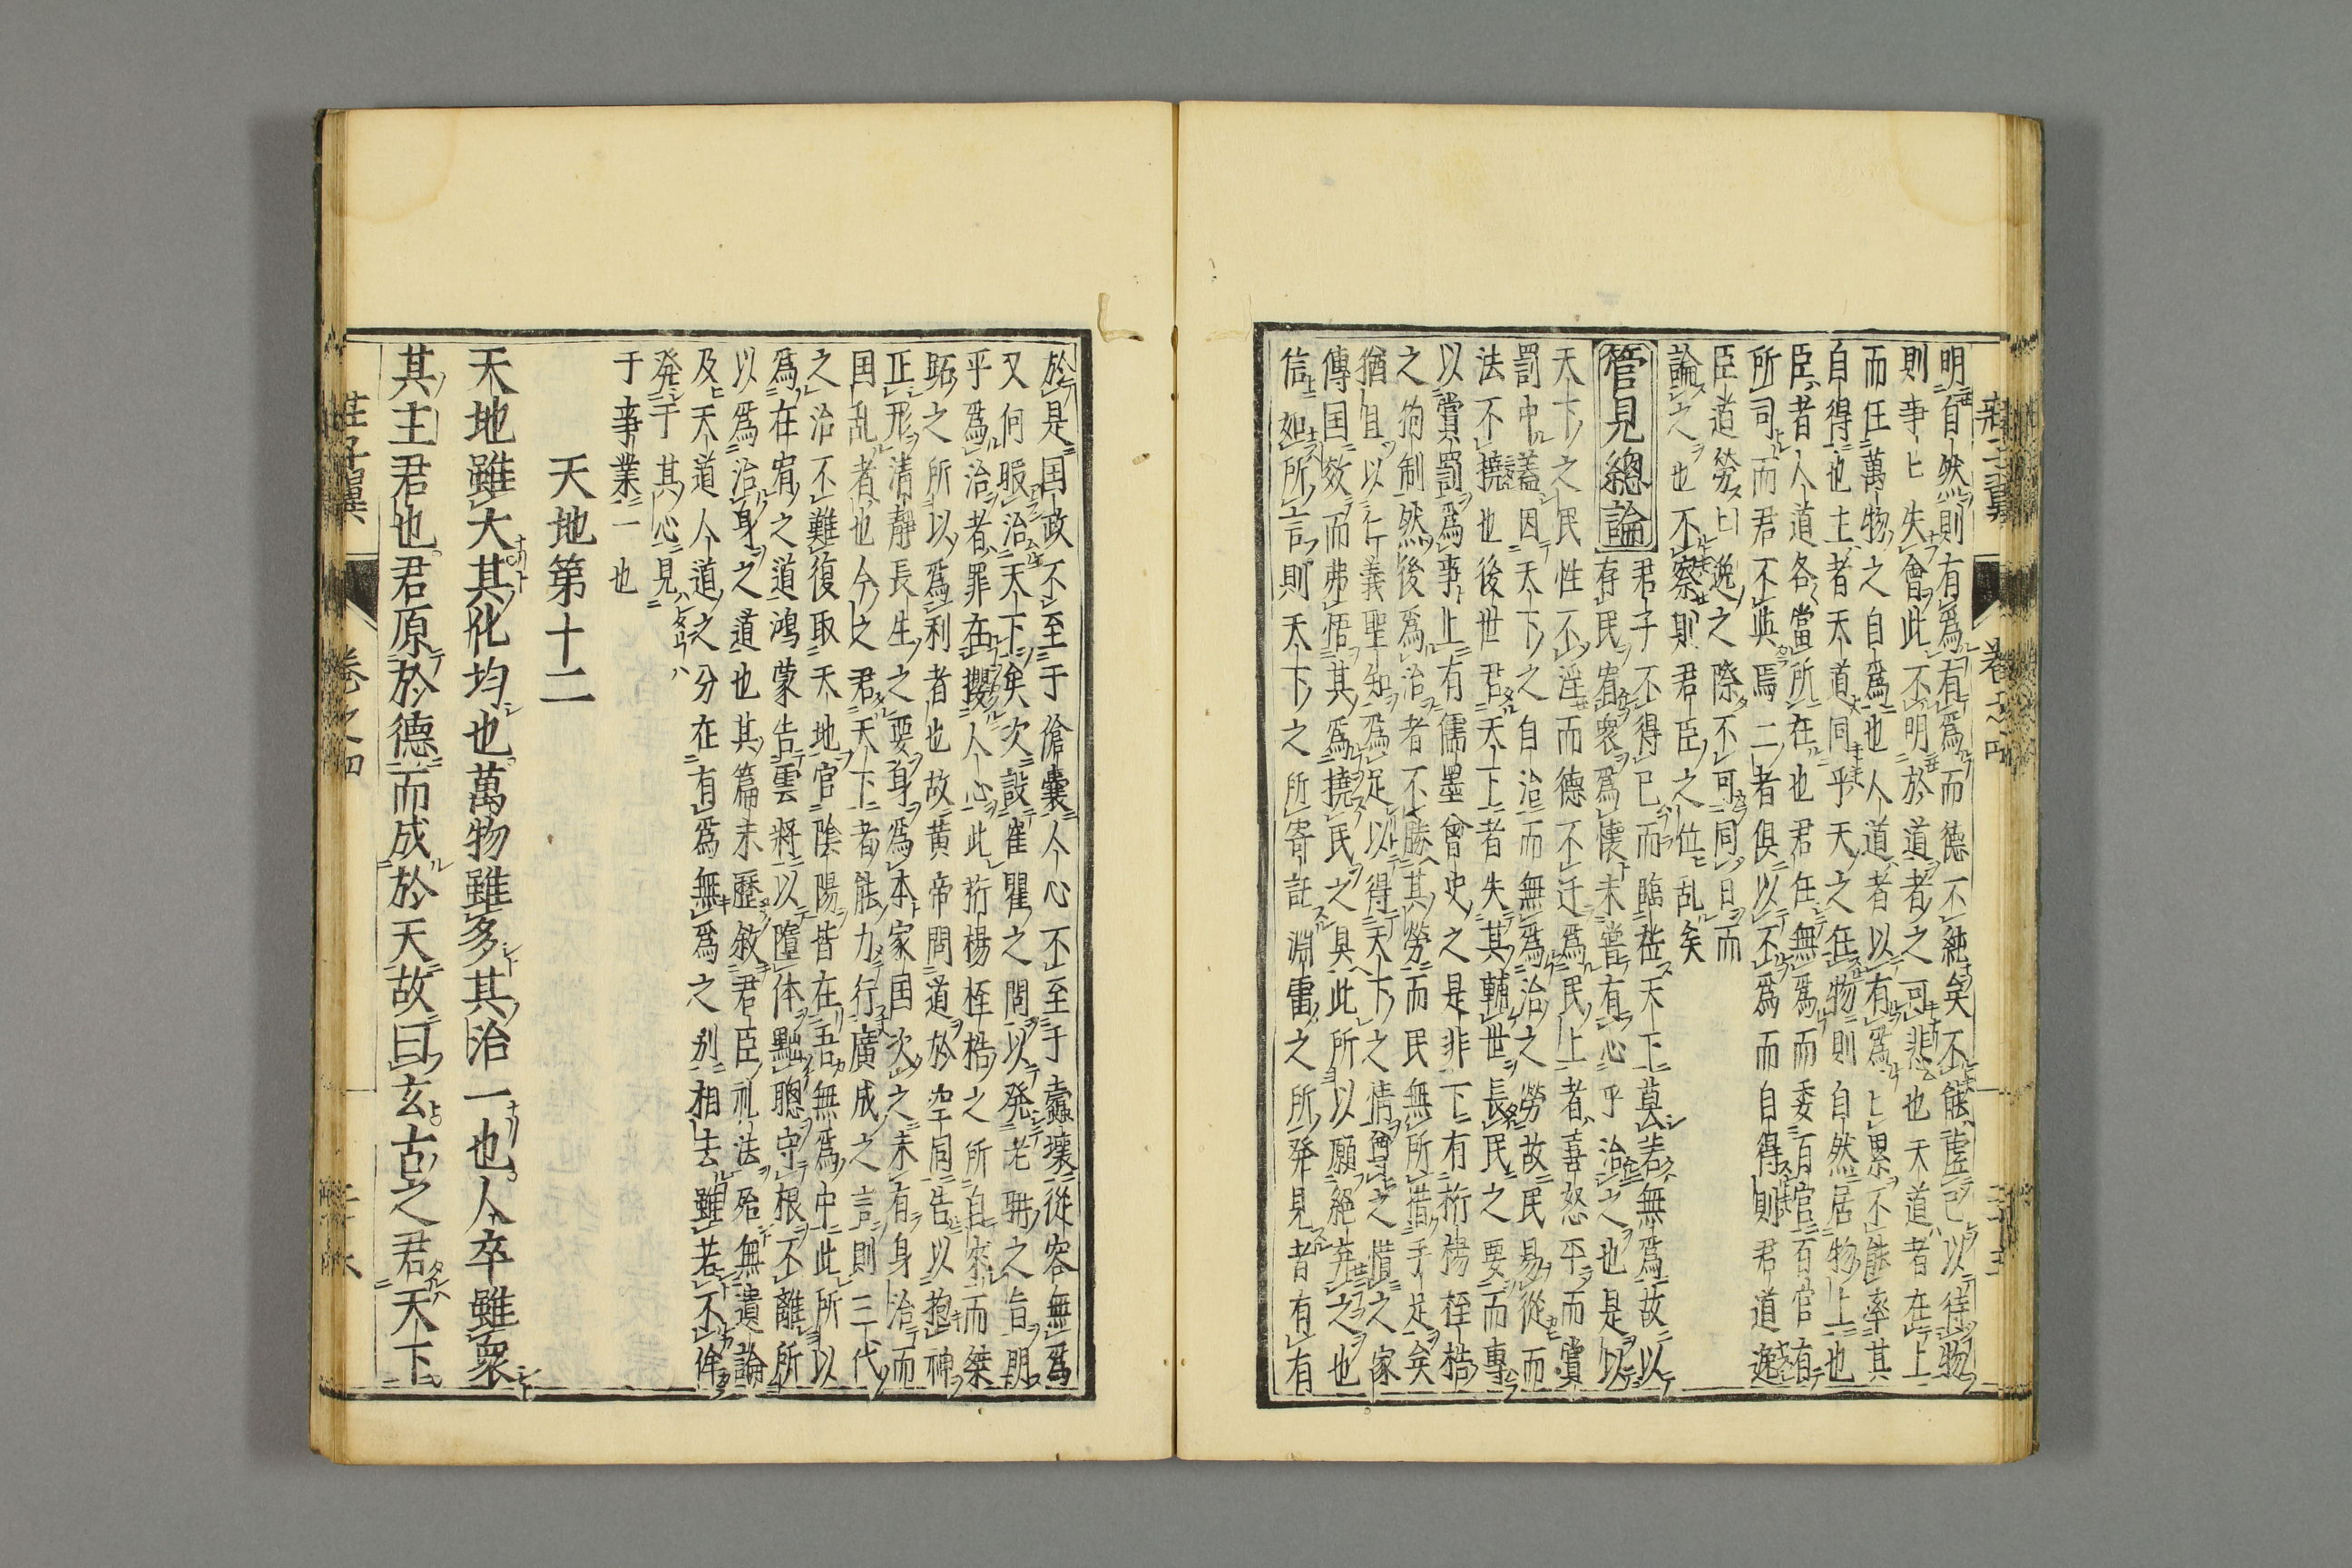 莊子翼
卷之四
三十五
明自然則有爲有爲而德不純矣不能虚已以待物
則事ヒ失會此不明於道者之可悲也天道者在上
而任萬物之自爲也人道者以有爲ヒ累不能率其
自得也主者天道同乎天之任物則自然居物上也
臣者人道各當所在也君任無爲而委百官百官有
所司而君不與焉二者俱以不爲而自得則君道逸
臣道勞勞逸之際不可同日而
論之也不察則君臣之位乱矣
管見總論
君子不得已而臨莅天下莫若無爲故以
存民宥衆爲懐未嘗有心乎治之也是以
天下之民性不淫而德不迁爲民上者喜怒平而賞
罰中蓋因天下之自治而無爲治之勞故民易從而
法不撓也後世君天下者失其輔世長民之要而專
以賞罰爲事上有儒墨曾史之是非下有桁楊桎梏
之拘制然後爲治者不勝其勞而民無所措手足矣
猶且以仁義聖知爲足以得天下之情尊之惜之家
傳国效而弗悟其爲撓民之具此所以願絶弃之也
信如所言則天下之所寄託淵雷之所発見者有有
於是国政不至于傖囊人心不至于蠹壊從容無爲
又何暇治天下矣次設崔瞿之問以発老聃之旨明
乎爲治者罪在攖人心此桁楊桎梏之所自來而桀
跖之所以爲利者也故黄帝問道於空同告以抱神
正形清靜長生之要身爲本家国次之未有身治而
国乱者也今之君天下者能力行廣成之言則三代
之治不難復取天地官陰陽皆在吾無爲中此所以
爲在宥之道鴻蒙告雲將以墮体黜聰守根不離所
以爲治身之道也其篇末歷敘君臣礼法殆無遺論
及天道人道之分在有爲無爲之别相去雖若不侔
発于其心見
于事業一也
天地第十二
天地雖大其化均也萬物雖多其治一也人卒雖衆
其主君也君原於德而成於天故曰玄古之君天下
莊子翼
卷之四